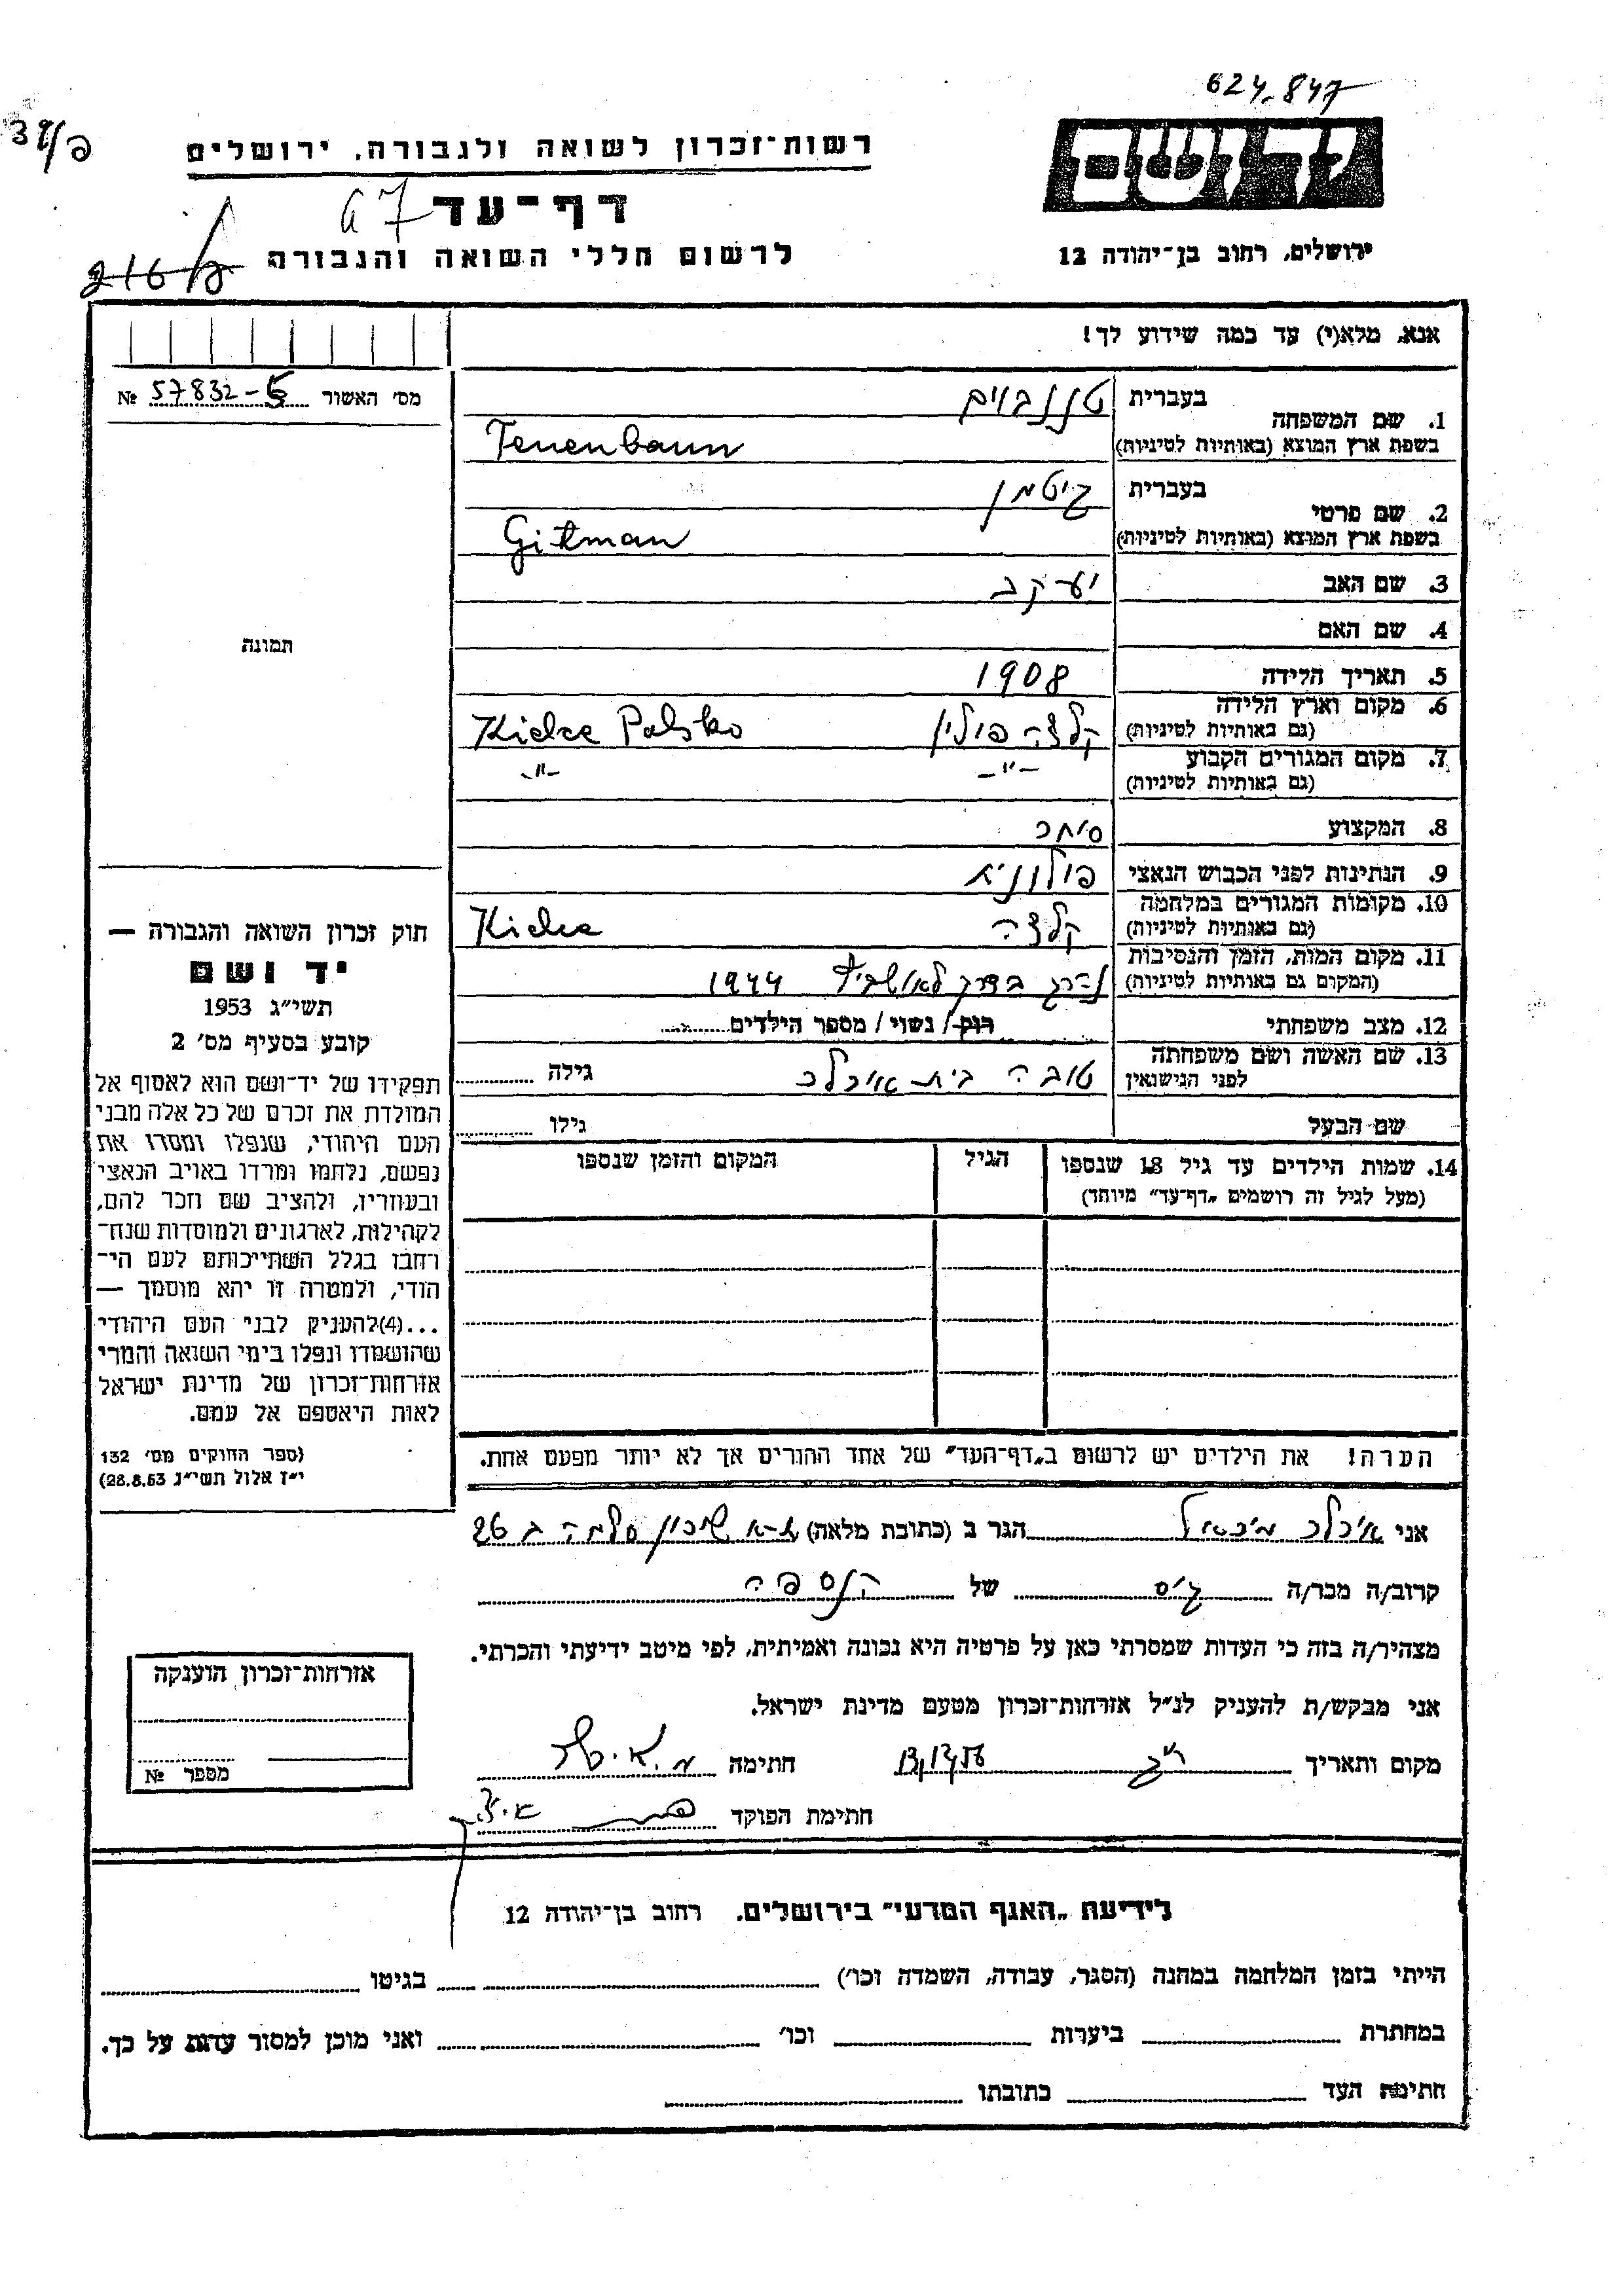 624.847
רשות־זכרון לשואה ולגבורה, ירושלים
ידושם
דף־עד
67
לרשום חללי השואה והגבורה
ירושלים, רחוב בן־יהודה 12
216/
אנא, מלא(י) עד כמה שידוע לך!
מס׳ האשור № 57832-
1. שם המשפחה בעברית טננבוים
בשפת ארץ המוצא (באותיות לטיניות) Tenenbaum
2. שם פרטי בעברית גיטמן
בשפת ארץ המוצא (באותיות לטיניות) Gitman
3. שם האב יעקב
4. שם האם
תמונה
5. תאריך הלידה 1908
6. מקום וארץ הלידה (גם באותיות לטיניות) קלצה פולין Kielce Polsko
7. מקום המגורים הקבוע (גם באותיות לטיניות) -"- -"-
8. המקצוע סוחר
9. הנתינות לפני הכבוש הנאצי פולונית
10. מקומות המגורים במלחמה (גם באותיות לטיניות) קלצה Kielce
11. מקום המות, הזמן והנסיבות (המקום גם באותיות לטיניות) נהרג בדרך לאושביץ 1944
12. מצב משפחתי רוק / נשוי / מספר הילדים
13. שם האשה ושם משפחתה לפני הנישואין טובה בית איכלר גילה
שם הבעל גילו
14. שמות הילדים עד גיל 18 שנספו (מעל לגיל זה רושמים „דף־עד" מיוחד) הגיל המקום והזמן שנספו
חוק זכרון השואה והגבורה —
יד ושם
תשי״ג 1953
קובע בסעיף מס׳ 2
תפקידו של יד־ושם הוא לאסוף אל
המולדת את זכרם של כל אלה מבני
העם היהודי, שנפלו ומסרו את
נפשם, נלחמו ומרדו באויב הנאצי
ובעוזריו, ולהציב שם וזכר להם,
לקהילות, לארגונים ולמוסדות שנח־
רחבו בגלל השתייכותם לעם הי־
הודי, ולמטרה זו יהא מוסמך —
...(4)להעניק לבני העם היהודי
שהושמדו ונפלו בימי השואה והמרי
אזרחות־זכרון של מדינת ישראל
לאות היאספם אל עמם.
(ספר החוקים מס׳ 132
י״ז אלול תשי״ג 28.8.53)
הערה! את הילדים יש לרשום ב„דף־העד" של אחד ההורים אך לא יותר מפעם אחת.
אני איכלר מיכאל הגר ב (כתובת מלאה) ת-א שיכון סלמה ג 26
קרוב/ה מכר/ה גיס של הנספה
מצהיר/ה בזה כי העדות שמסרתי כאן על פרטיה היא נכונה ואמיתית, לפי מיטב ידיעתי והכרתי.
אני מבקש/ת להעניק לנ״ל אזרחות־זכרון מטעם מדינת ישראל.
מקום ותאריך חתימה
חתימת הפוקד
אזרחות־זכרון הוענקה
מספר №
לידיעת „האגף המדעי" בירושלים. רחוב בן־יהודה 12
הייתי בזמן המלחמה במחנה (הסגר, עבודה, השמדה וכו׳) בגיטו
במחתרת ביערות וכו׳ ואני מוכן למסור עדות על כך.
חתימת העד כתובתו